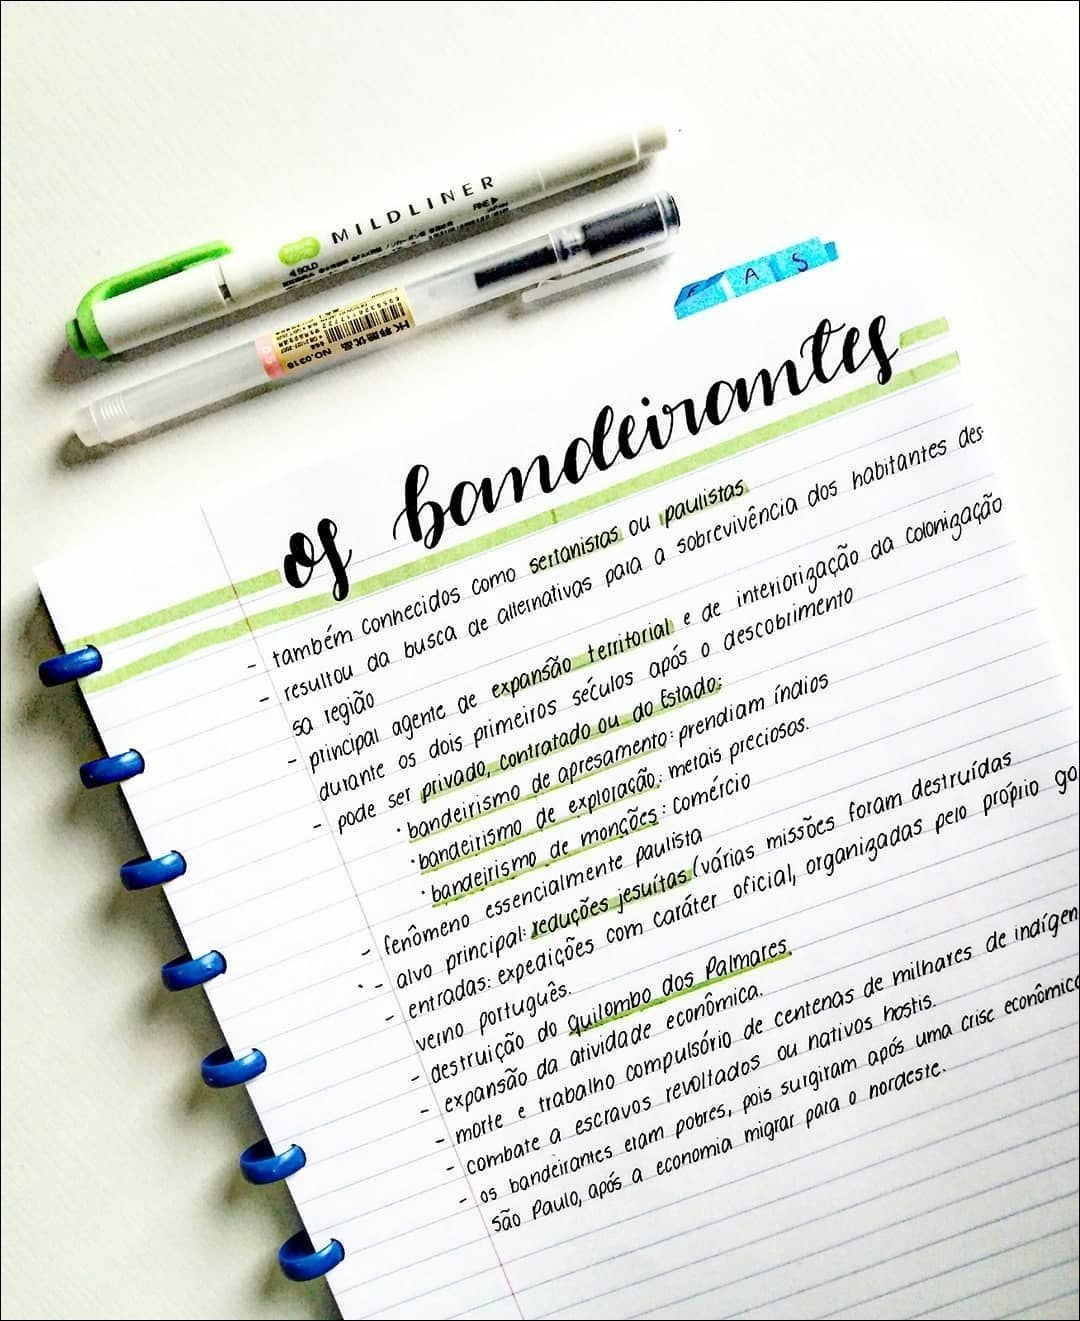 MILDLINER
FINE
JAPAN
HK
NO.0316
A S
os bandeirantes
- também conhecidos como sertanistas ou paulistas
- resultou da busca de alternativas para a sobrevivência dos habitantes des-
sa região
- principal agente de expansão territorial e de interiorização da colonização
durante os dois primeiros séculos após o descobrimento
- pode ser privado, contratado ou do Estado:
· bandeirismo de apresamento: prendiam índios
· bandeirismo de exploração: metais preciosos.
· bandeirismo de monções: comércio
- fenômeno essencialmente paulista
- alvo principal: reduções jesuítas (várias missões foram destruídas
- entradas: expedições com caráter oficial, organizadas pelo próprio go
verno português.
- destruição do Quilombo dos Palmares.
- expansão da atividade econômica.
- morte e trabalho compulsório de centenas de milhares de indígen
- combate a escravos revoltados ou nativos hostis.
- os bandeirantes eram pobres, pois surgiram após uma crise econômica
São Paulo, após a economia migrar para o nordeste.